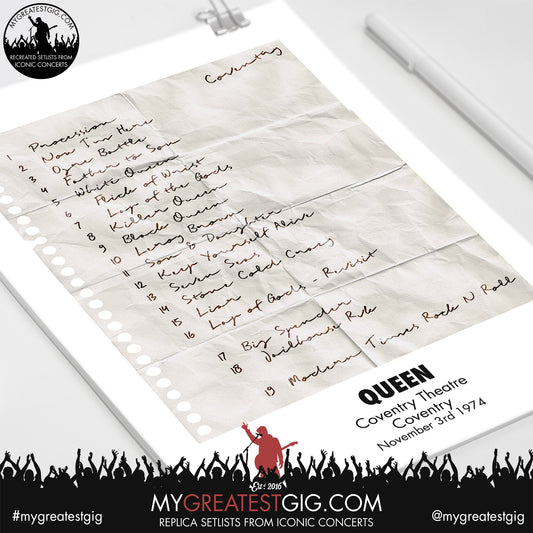 MYGREATESTGIG.COM
RECREATED SETLISTS FROM
ICONIC CONCERTS
Coventry
1 Procession
2 Now I'm Here
3 Ogre Battle
4 Father to Son
5 White Queen
6 Flick of Wrist
7 Lap of the Gods
8 Killer Queen
9 Black Queen
10 Leroy Brown
11 Son & Daughter
12 Keep Yourself Alive
13 Seven Seas
14 Stone Cold Crazy
15 Liar
16 Lap of Gods - Revisit
17 Big Spender
18 Jailhouse Rock
19 Modern Times Rock N Roll
QUEEN
Coventry Theatre
Coventry
November 3rd 1974
Est: 2016
MYGREATESTGIG.COM
#mygreatestgig
REPLICA SETLISTS FROM ICONIC CONCERTS
@mygreatestgig